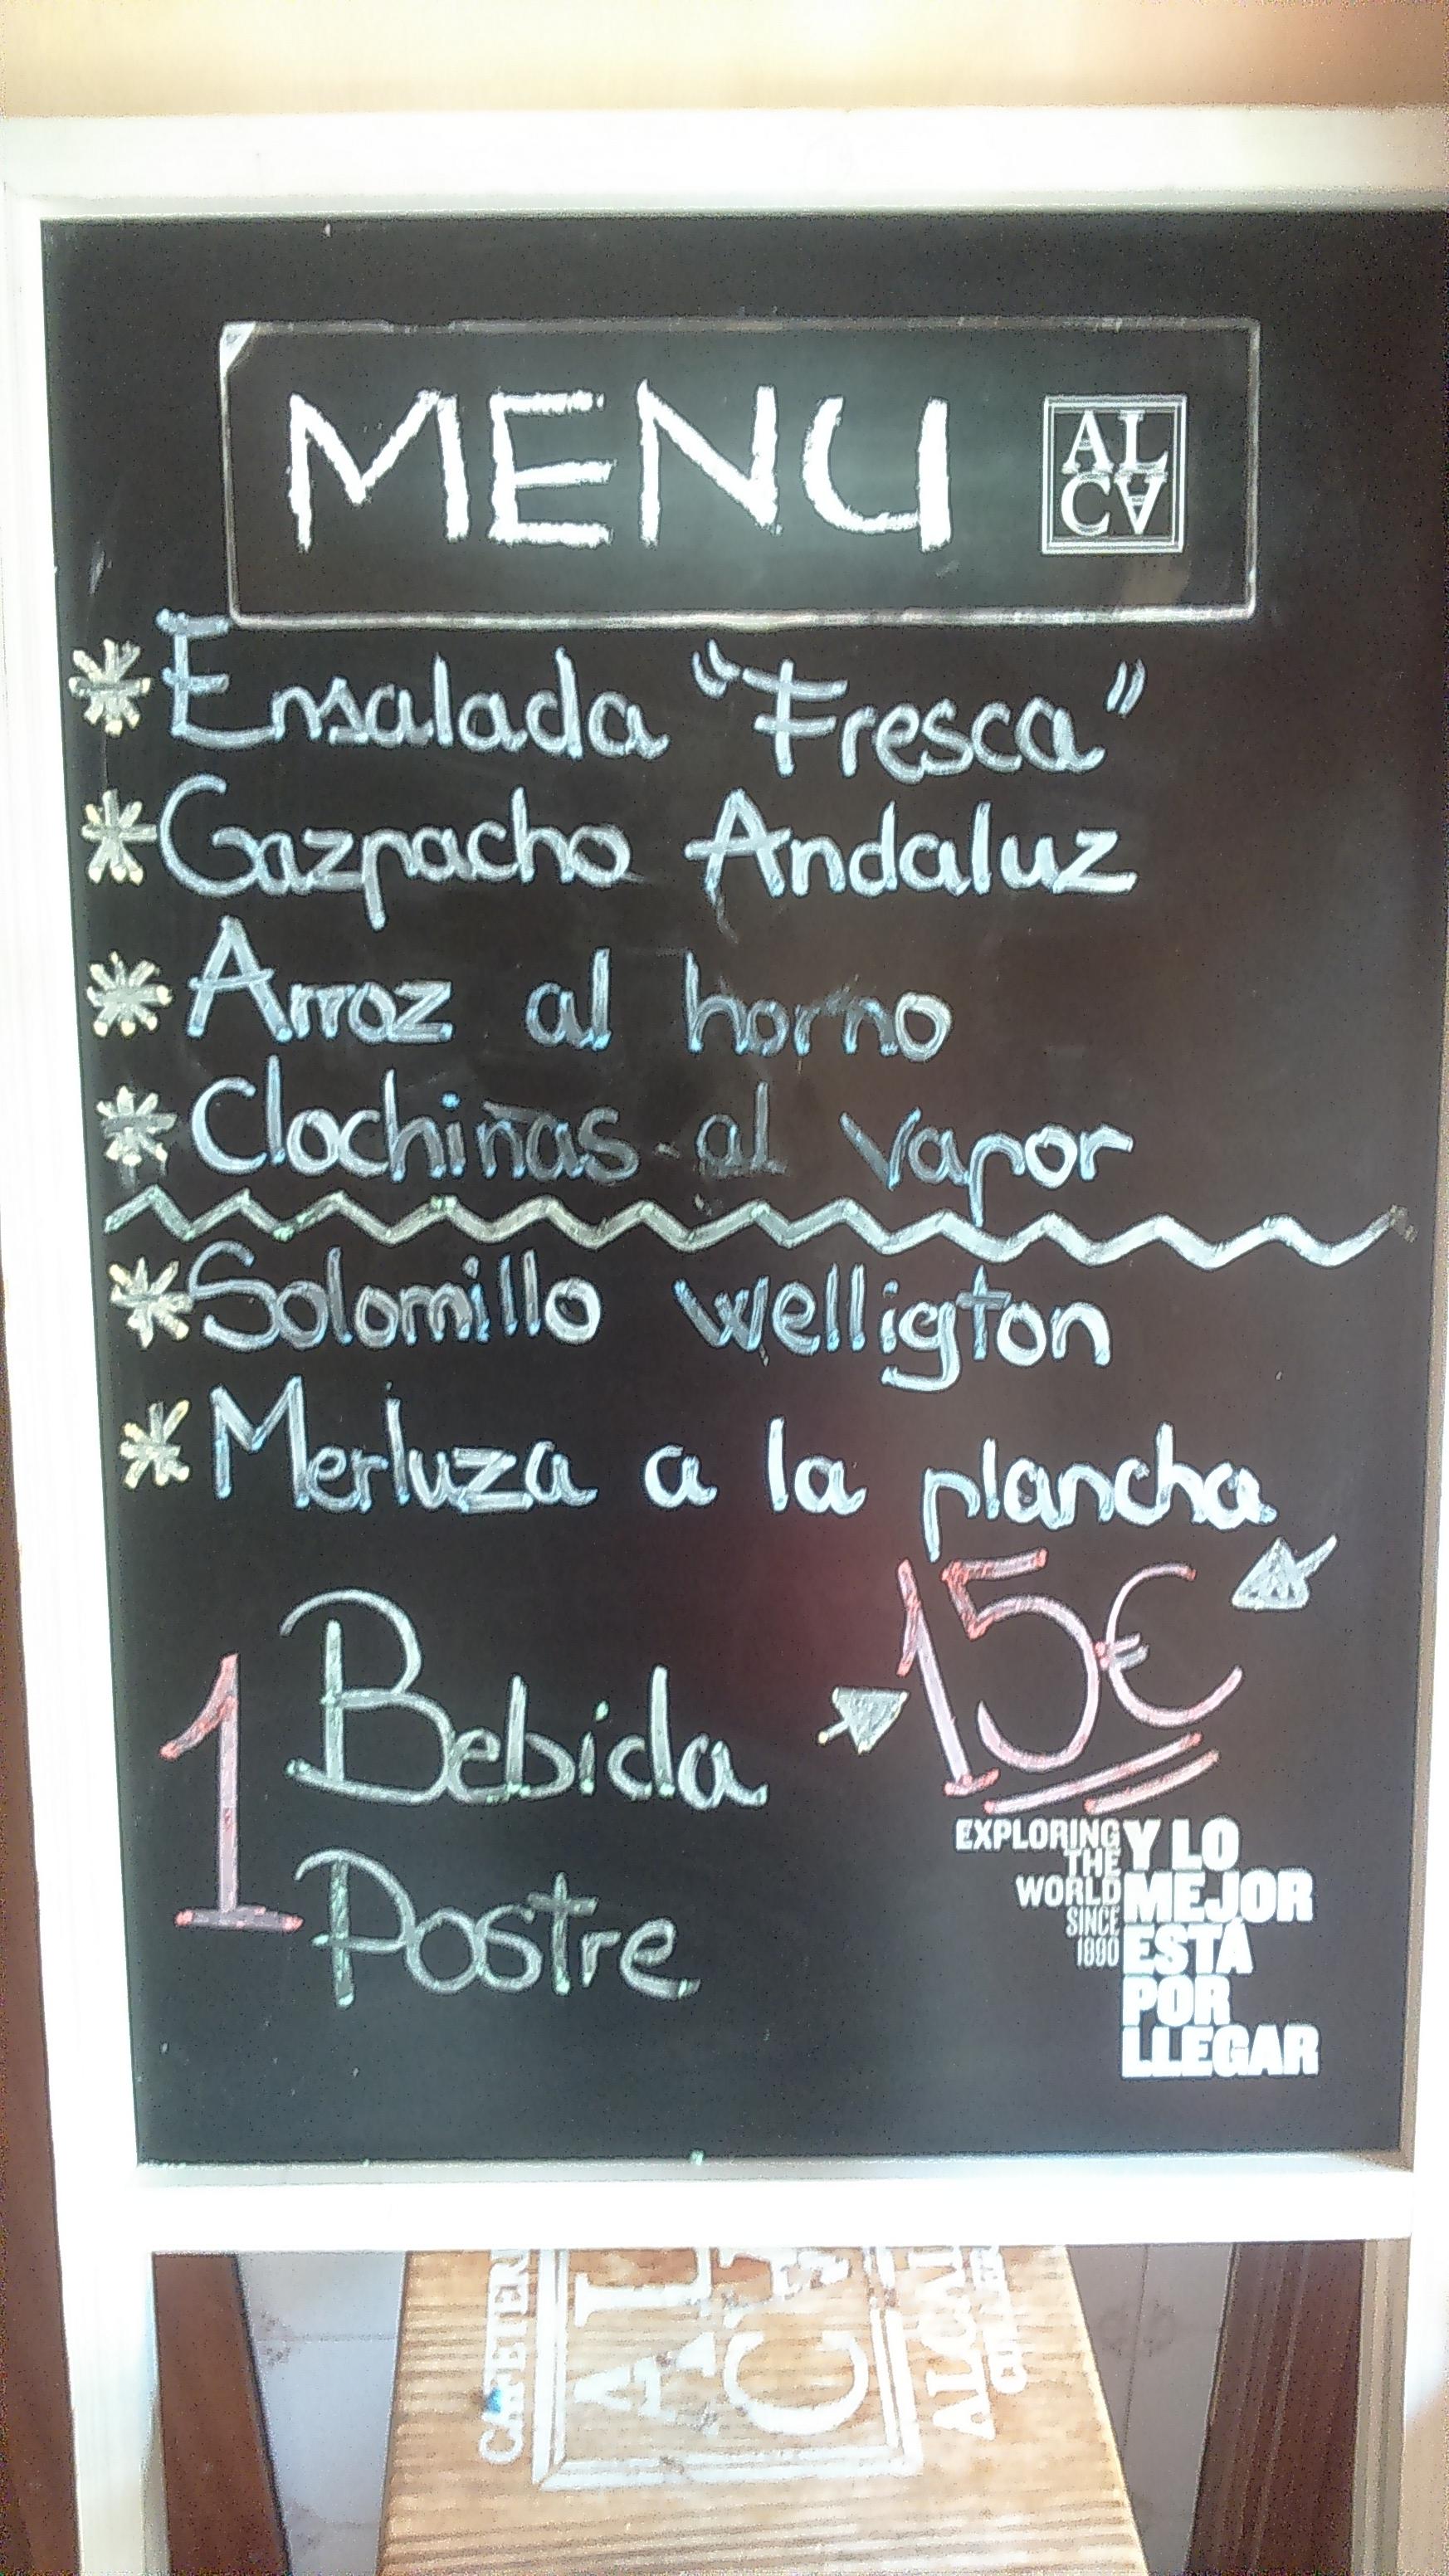 MENU
AL
CA
* Ensalada "Fresca"
* Gazpacho Andaluz
* Arroz al horno
* Clochinas al vapor
* Solomillo welligton
* Merluza a la plancha
15€
1 Bebida
Postre
EXPLORING
THE
WORLD
SINCE
1890
Y LO
MEJOR
ESTÁ
POR
LLEGAR
AL